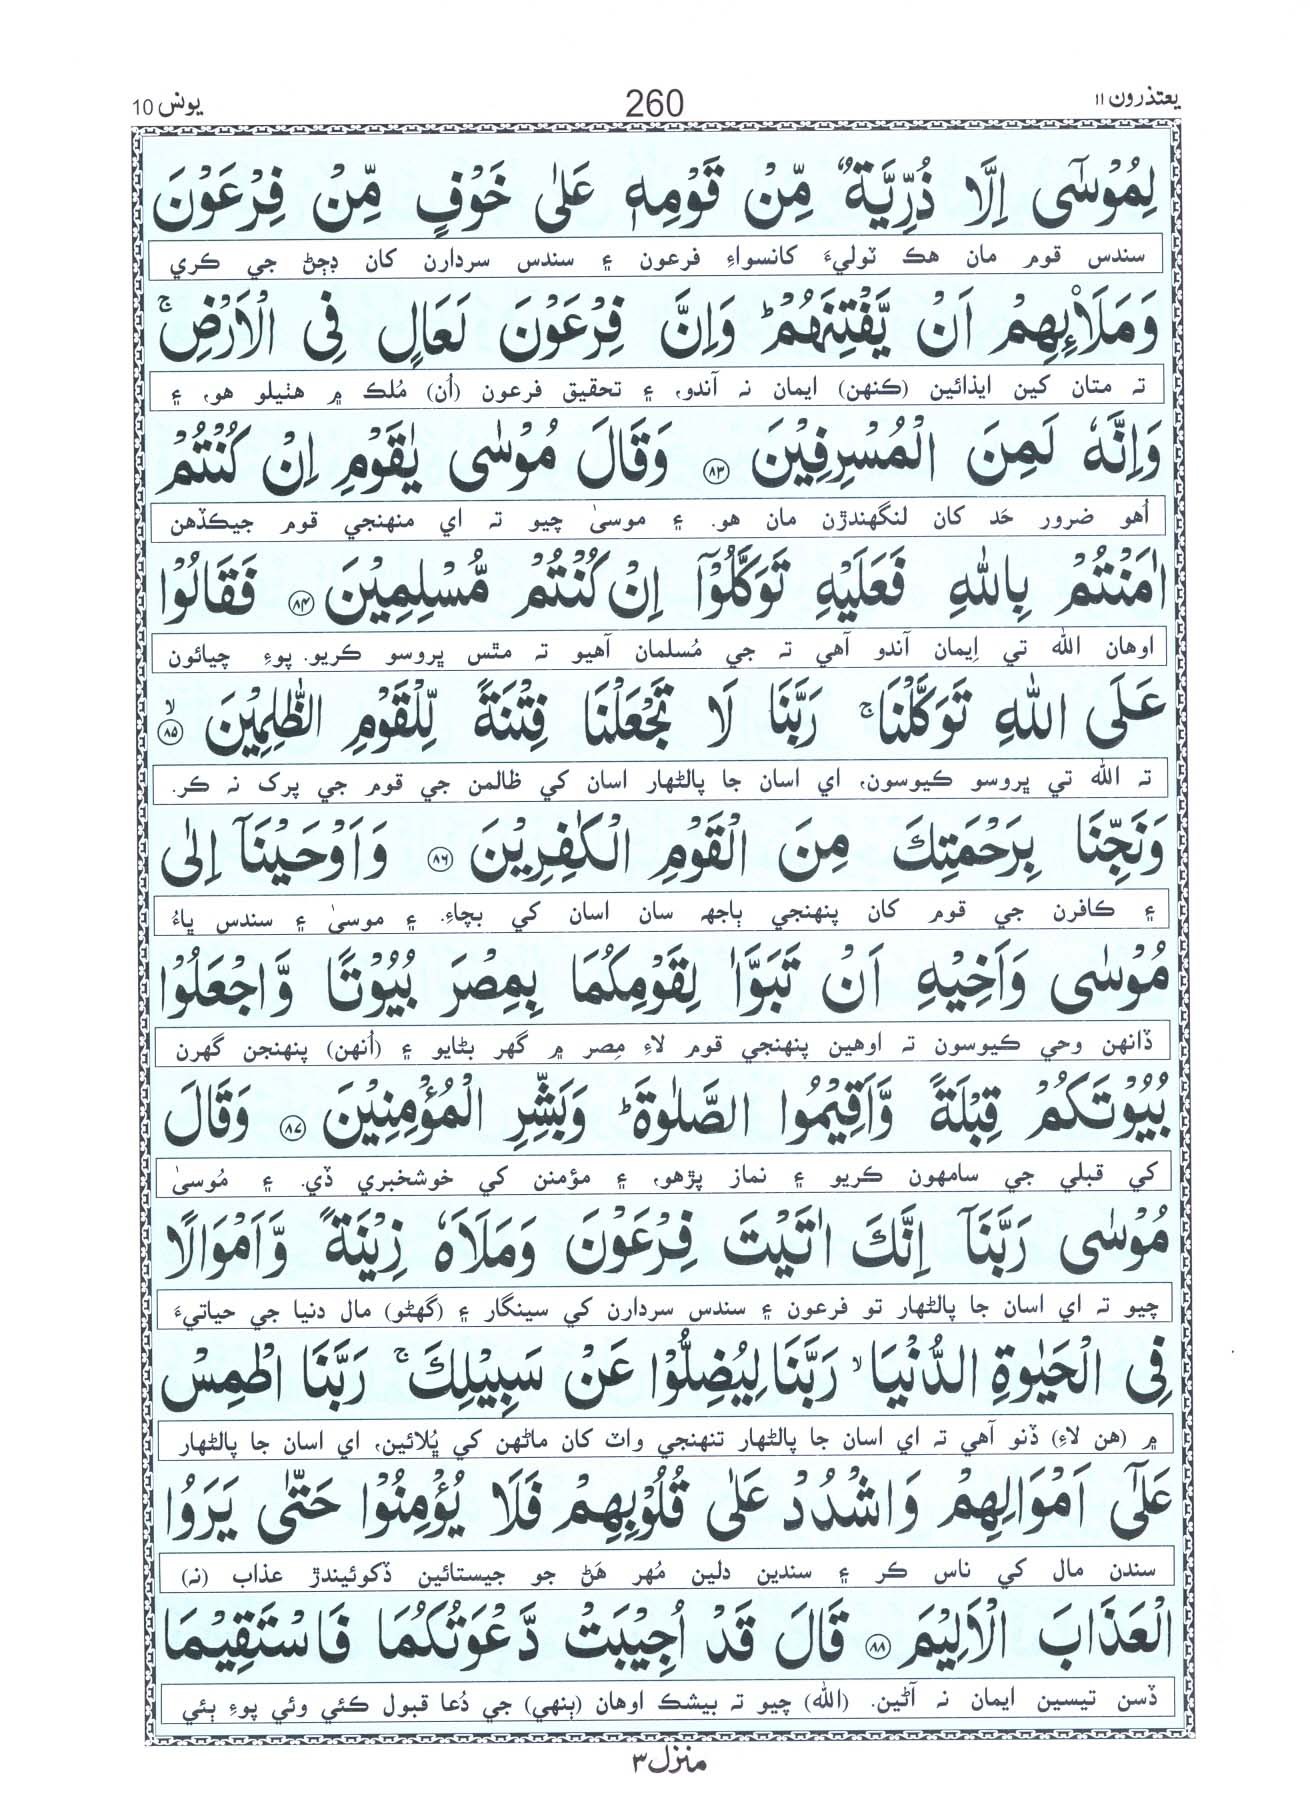 يعتذرون ١١
260
يونس 10
لِمُوْسٰٓى اِلَّا ذُرِّيَّةٌ مِّنْ قَوْمِهٖ عَلٰى خَوْفٍ مِّنْ فِرْعَوْنَ
سندس قوم مان هڪ ٽوليءَ کانسواءِ فرعون ۽ سندس سردارن کان ڊڄڻ جي ڪري
وَمَلَا۟ئِهِمْ اَنْ يَّفْتِنَهُمْ ؕ وَاِنَّ فِرْعَوْنَ لَعَالٍ فِى الْاَرْضِ ۚ
ته متان کين ايذائين (ڪنهن) ايمان نه آندو، ۽ تحقيق فرعون (اُن) مُلڪ ۾ هٺيلو هو، ۽
وَاِنَّهٗ لَمِنَ الْمُسْرِفِيْنَ ﴿٨٣﴾ وَقَالَ مُوْسٰى يٰقَوْمِ اِنْ كُنْتُمْ
اُهو ضرور حَد کان لنگهندڙن مان هو. ۽ موسيٰ چيو ته اي منهنجي قوم جيڪڏهن
اٰمَنْتُمْ بِاللّٰهِ فَعَلَيْهِ تَوَكَّلُوْٓا اِنْ كُنْتُمْ مُّسْلِمِيْنَ ﴿٨٤﴾ فَقَالُوْا
اوهان الله تي اِيمان آندو آهي ته جي مُسلمان آهيو ته مٿس ڀروسو ڪريو. پوءِ چيائون
عَلَى اللّٰهِ تَوَكَّلْنَا ۚ رَبَّنَا لَا تَجْعَلْنَا فِتْنَةً لِّلْقَوْمِ الظّٰلِمِيْنَ ﴿٨٥﴾ ۙ
ته الله تي ڀروسو ڪيوسون، اي اسان جا پالڻهار اسان کي ظالمن جي قوم جي پرک نه ڪر.
وَنَجِّنَا بِرَحْمَتِكَ مِنَ الْقَوْمِ الْكٰفِرِيْنَ ﴿٨٦﴾ وَاَوْحَيْنَآ اِلٰى
۽ ڪافرن جي قوم کان پنهنجي ٻاجهہ سان اسان کي بچاءِ. ۽ موسيٰ ۽ سندس ڀاءُ
مُوْسٰى وَاَخِيْهِ اَنْ تَبَوَّاٰ لِقَوْمِكُمَا بِمِصْرَ بُيُوْتًا وَّاجْعَلُوْا
ڏانهن وحي ڪيوسون ته اوهين پنهنجي قوم لاءِ مِصر ۾ گهر بڻايو ۽ (اُنهن) پنهنجن گهرن
بُيُوْتَكُمْ قِبْلَةً وَّاَقِيْمُوا الصَّلٰوةَ ؕ وَبَشِّرِ الْمُؤْمِنِيْنَ ﴿٨٧﴾ وَقَالَ
کي قبلي جي سامهون ڪريو ۽ نماز پڙهو، ۽ مؤمنن کي خوشخبري ڏي. ۽ مُوسيٰ
مُوْسٰى رَبَّنَآ اِنَّكَ اٰتَيْتَ فِرْعَوْنَ وَمَلَاَهٗ زِيْنَةً وَّاَمْوَالًا
چيو ته اي اسان جا پالڻهار تو فرعون ۽ سندس سردارن کي سينگار ۽ (گهڻو) مال دنيا جي حياتيءَ
فِى الْحَيٰوةِ الدُّنْيَا ۙ رَبَّنَا لِيُضِلُّوْا عَنْ سَبِيْلِكَ ۚ رَبَّنَا اطْمِسْ
۾ (هن لاءِ) ڏنو آهي ته اي اسان جا پالڻهار تنهنجي واٽ کان ماڻهن کي ڀُلائين، اي اسان جا پالڻهار
عَلٰٓى اَمْوَالِهِمْ وَاشْدُدْ عَلٰى قُلُوْبِهِمْ فَلَا يُؤْمِنُوْا حَتّٰى يَرَوُا
سندن مال کي ناس ڪر ۽ سندين دلين مُهر هَڻ جو جيستائين ڏکوئيندڙ عذاب (نه)
الْعَذَابَ الْاَلِيْمَ ﴿٨٨﴾ قَالَ قَدْ اُجِيْبَتْ دَّعْوَتُكُمَا فَاسْتَقِيْمَا
ڏسن تيسين ايمان نه آڻين. (الله) چيو ته بيشڪ اوهان (ٻنهي) جي دُعا قبول ڪئي وئي پوءِ ٻئي
منزل ٣